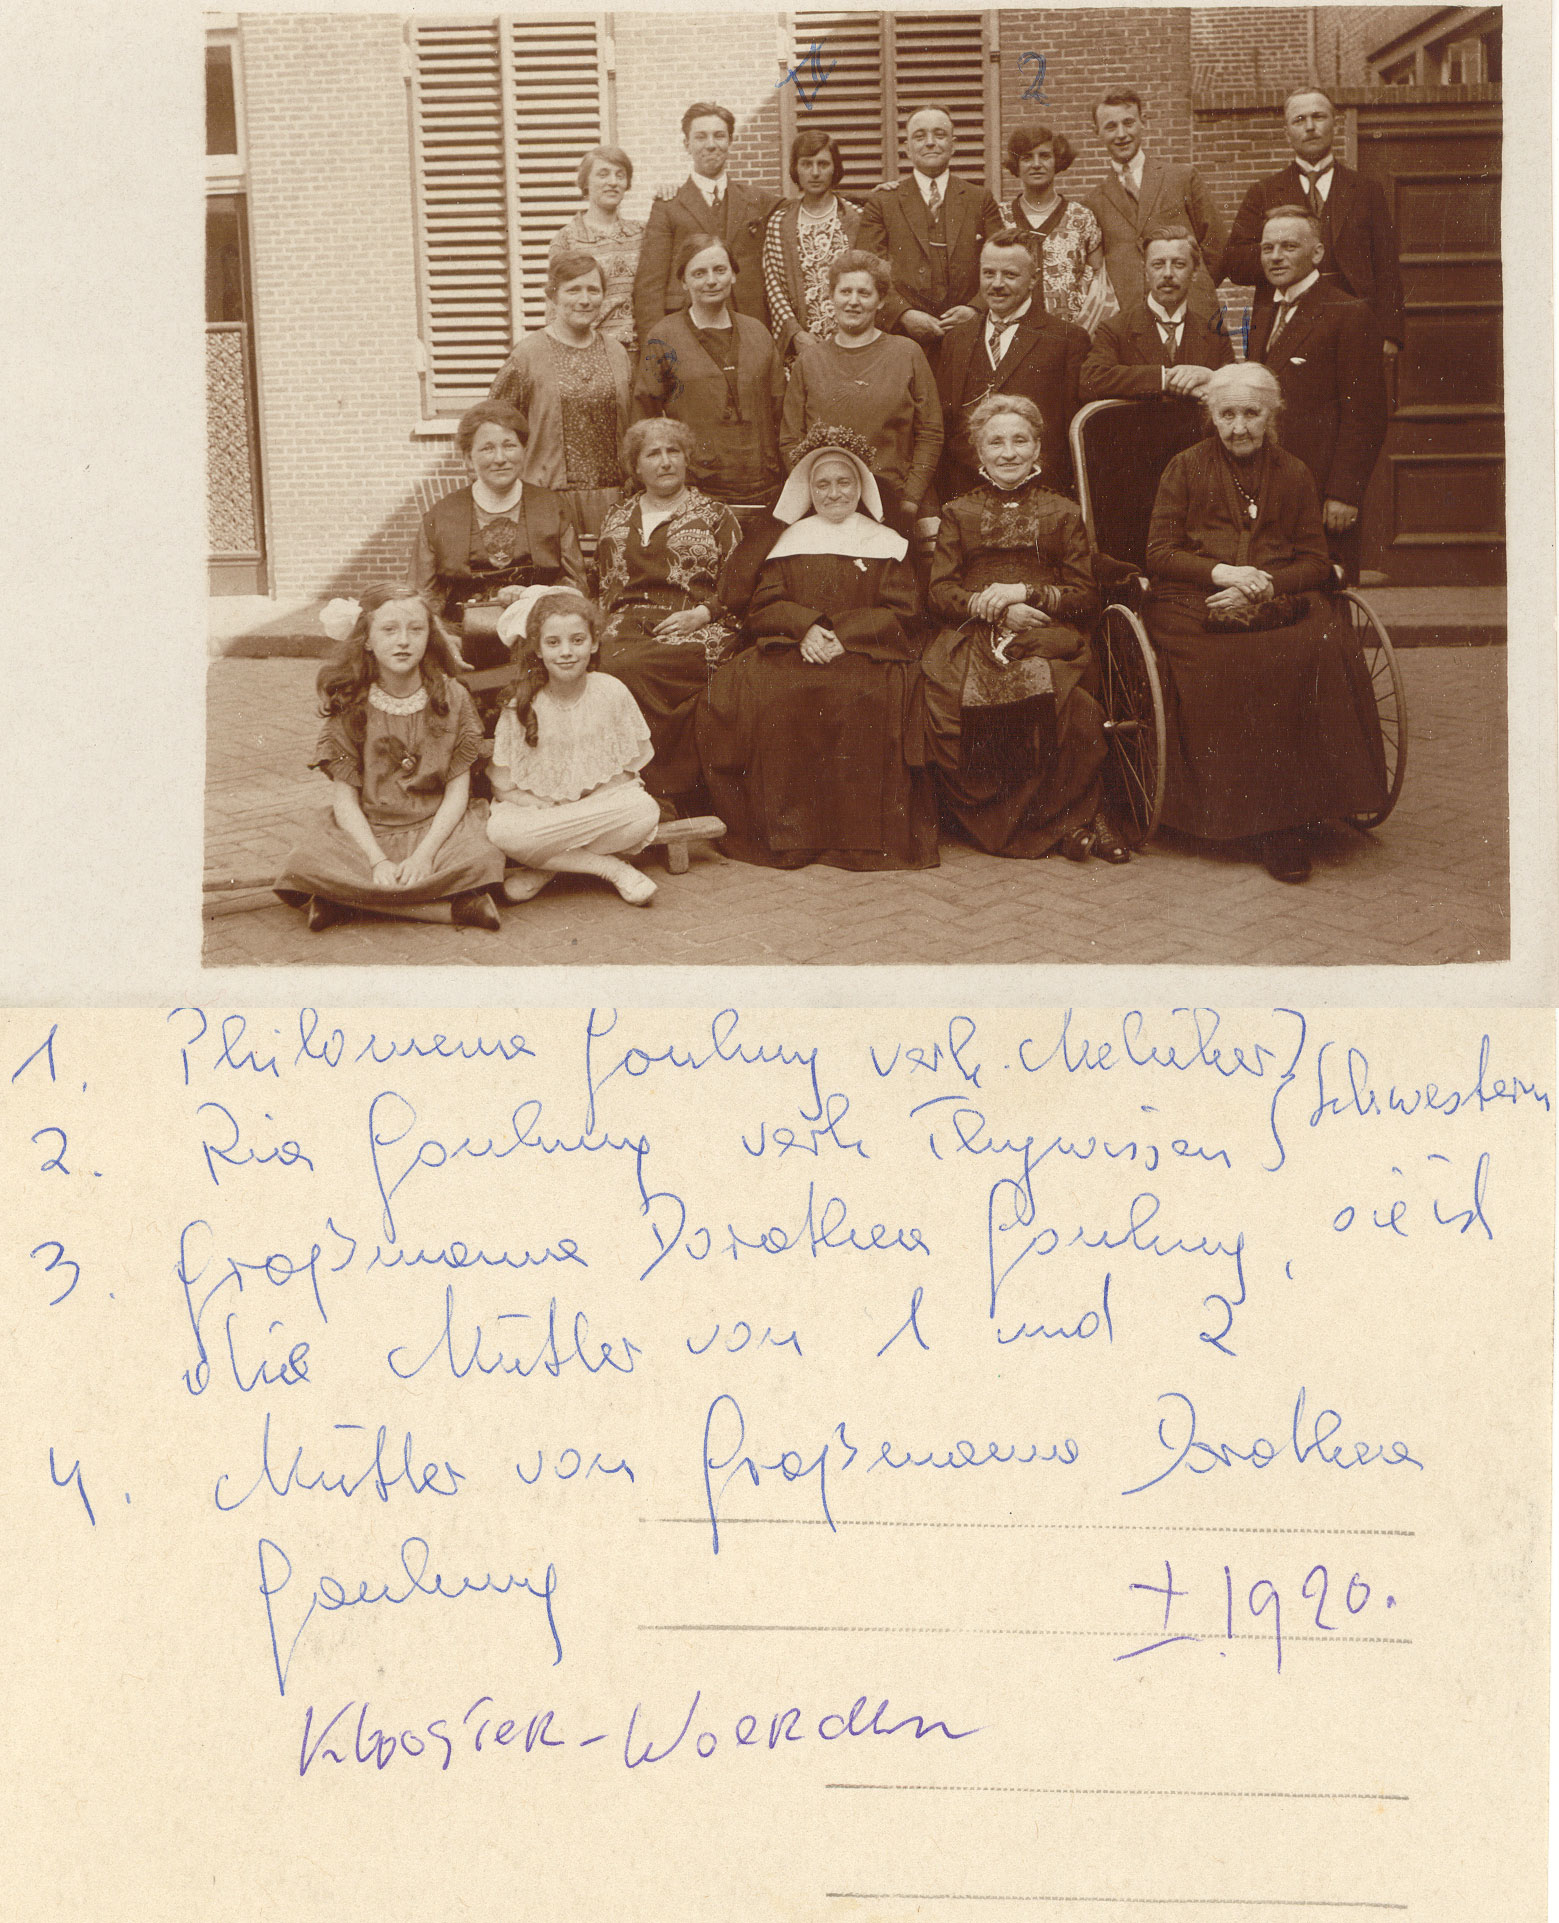 1
2
3
4
1. Philomena Goulmy verh. Melüher } Schwestern
2. Ria Goulmy verh. Flugwissen
3. Großmama Dorothea Goulmy, sie ist
die Mutter von 1 und 2
4. Mutter von Großmama Dorothea
Goulmy
± 1920.
Klooster-Woerden